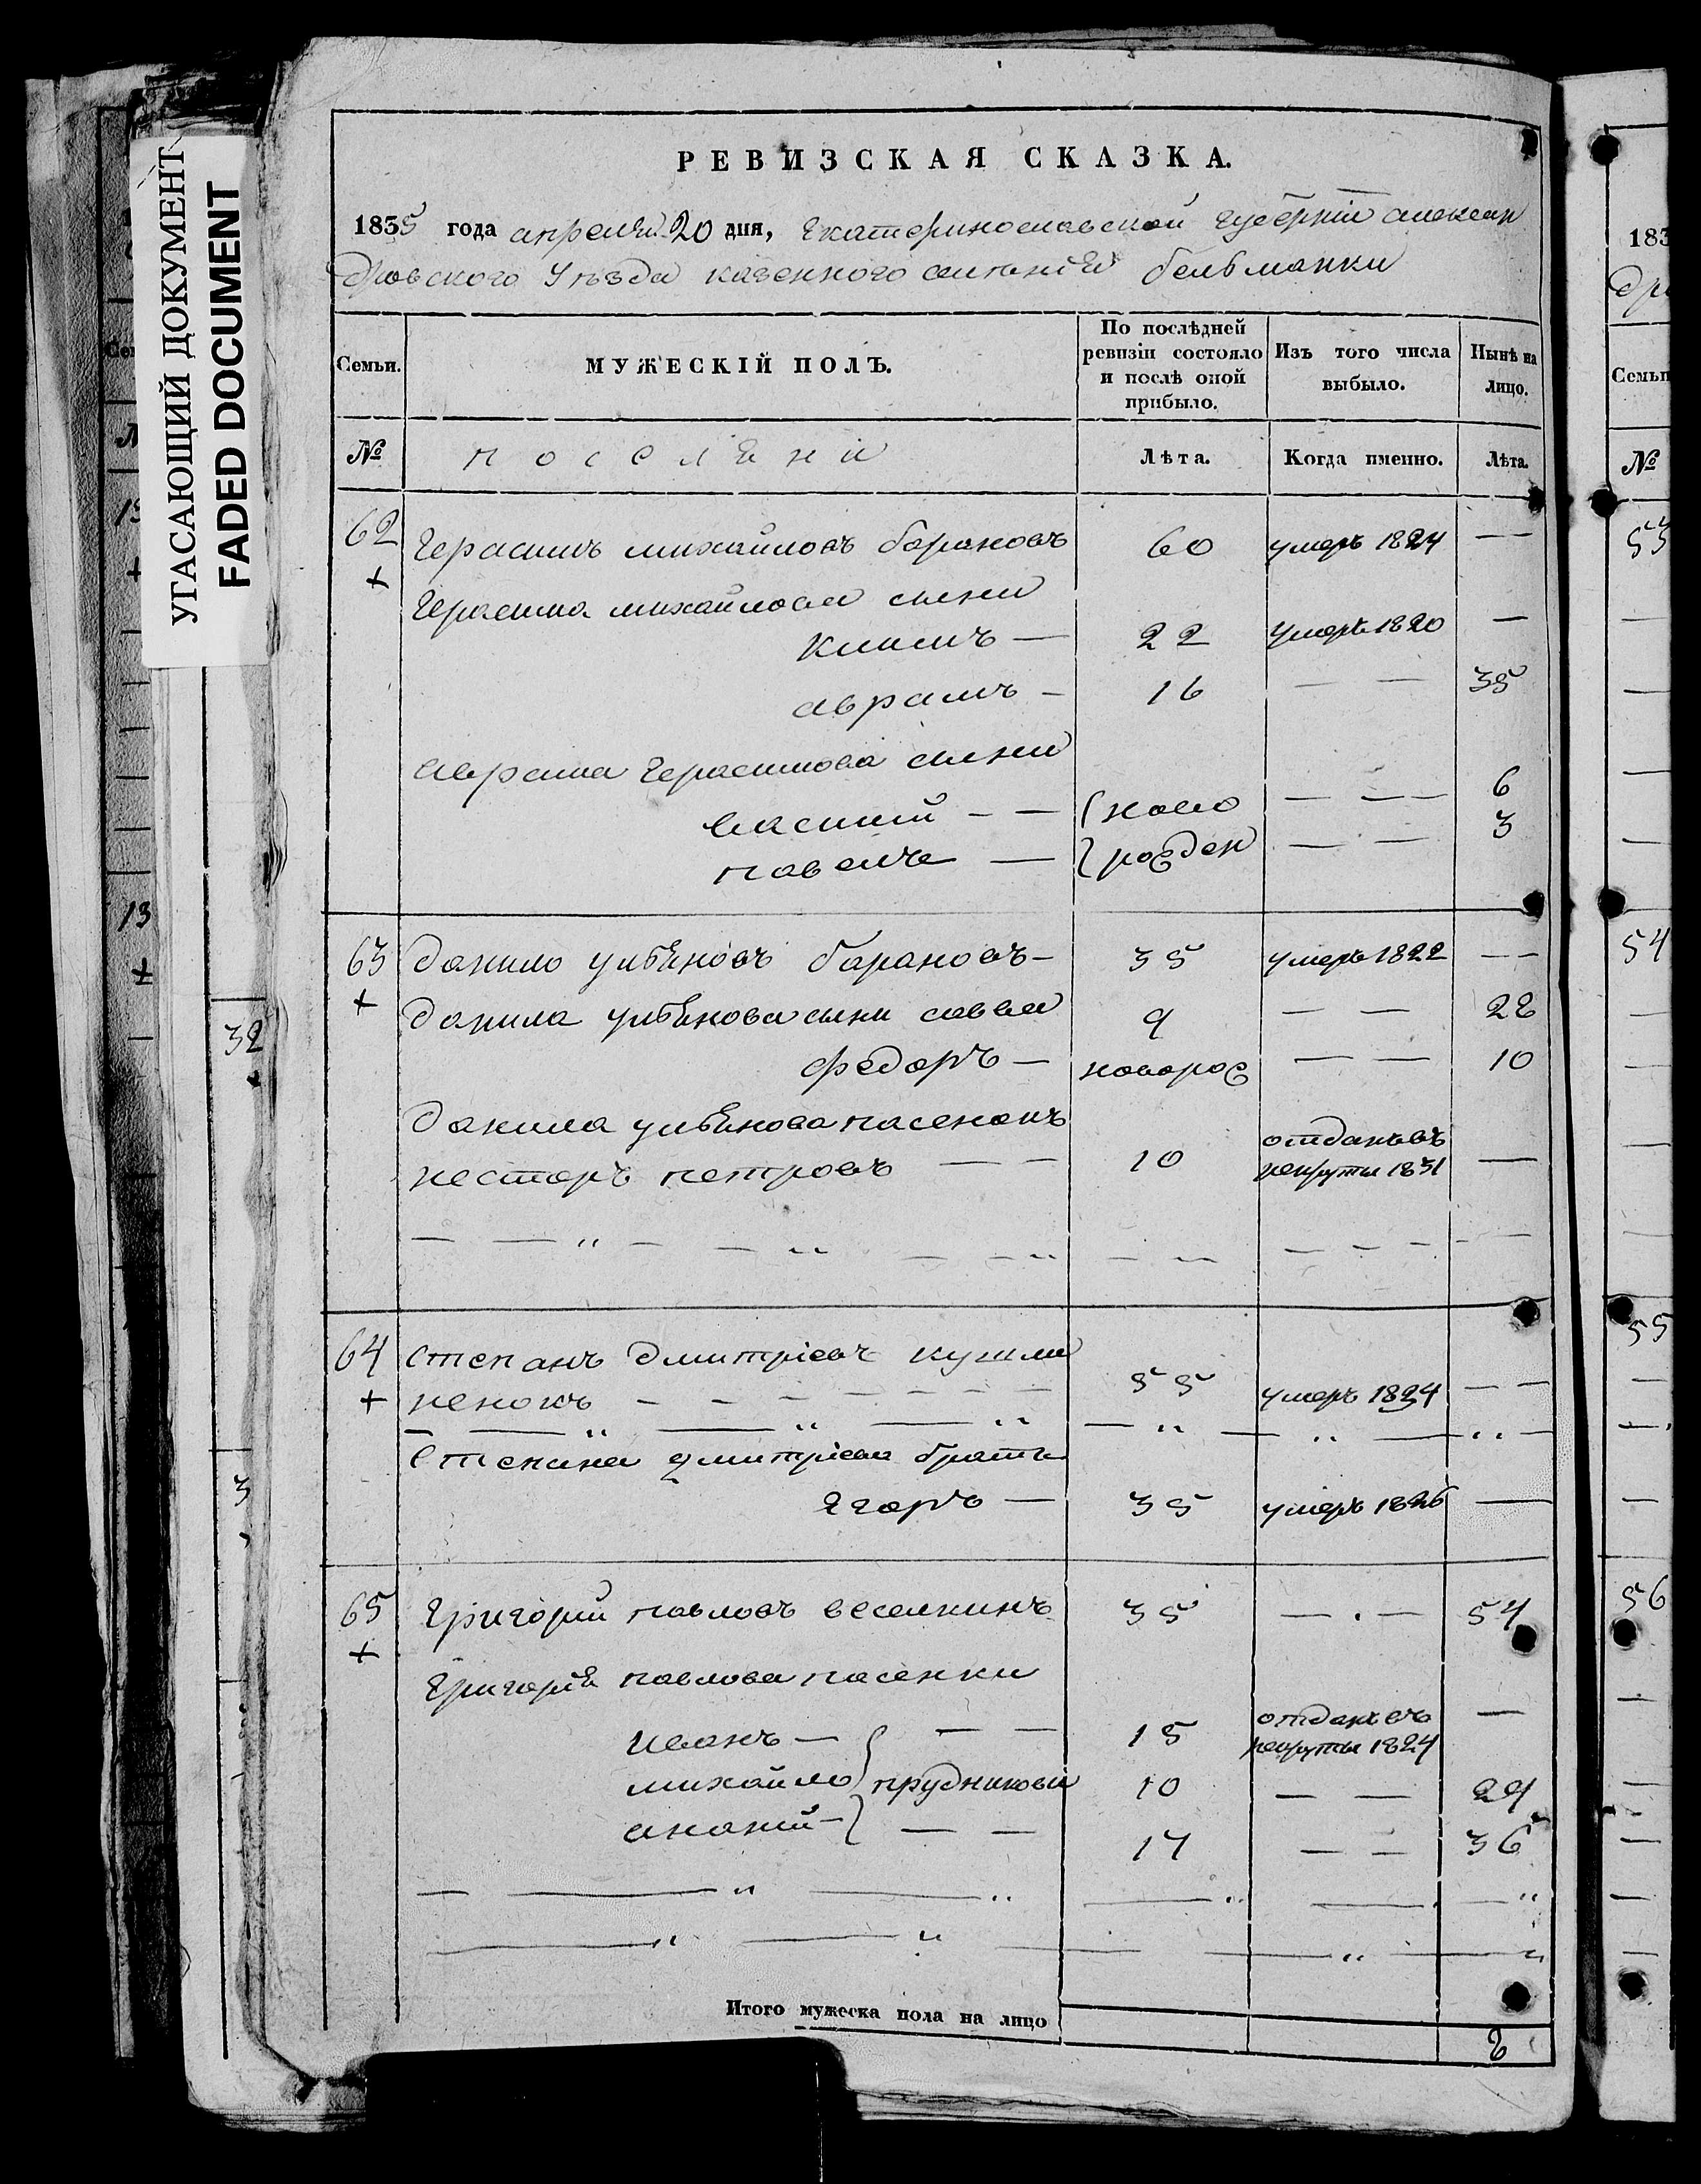 УГАСАЮЩИЙ ДОКУМЕНТ
FADED DOCUMENT
РЕВИЗСКАЯ СКАЗКА.
1835 года апреля 20 дня, Екатеринославской губернии алексан
дровского уѣзда казенного селенiя бельманки
Семьи.
МУЖЕСКІЙ ПОЛЪ.
По послѣдней ревизіи состояло и послѣ оной прибыло.
Изъ того числа выбыло.
Нынѣ на лицо.
№ поселяни Лѣта. Когда именно. Лѣта.
62 Герасимъ михайловъ барановъ 60 умеръ 1824 —
+ Герасима михайлова сыни
климъ — 22 умеръ 1820 —
аврамъ — 16 — — 35
аврама Герасимова сыни
василий — — ново — — 6
павелъ — рожден — — 3
63 данило ульяновъ барановъ — 35 умеръ 1822 —
+ данила ульянова сыни савва 9 — — 28
федоръ — новорож — — 10
данила ульянова пасенокъ
несторъ петровъ — — 10 отданъ въ рекруты 1831 —
64 степанъ дмитрiевъ кушни
+ ренокъ — — — 55 умеръ 1834 — —
Степана дмитрiева братъ
Егоръ — 35 умеръ 1826 —
65 Григорий павловъ веселкинъ 35 — . — 54
+ Григорiя павлова пасенки
иванъ — — — 15 отданъ въ рекруты 1824 —
михайло прудниковы 10 — — 29
ананий — — — 17 — — 36
Итого мужеска пола на лицо 8
183
Семьи
№
53
54
55
56
32
3
13
+